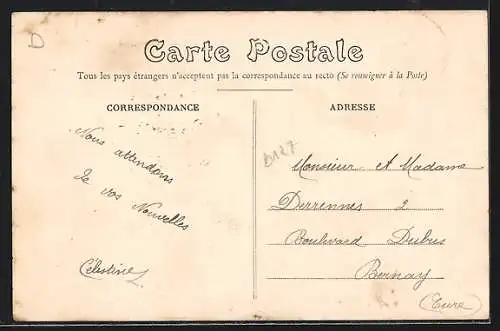 D
Carte Postale
Tous les pays étrangers n'acceptent pas la correspondance au recto (Se renseigner à la Poste)
CORRESPONDANCE
ADRESSE
Nous attendons
de vos Nouvelles
Célestine
Monsieur et Madame
Derrennes 2
Boulevard Dubus
Bernay
(Eure)